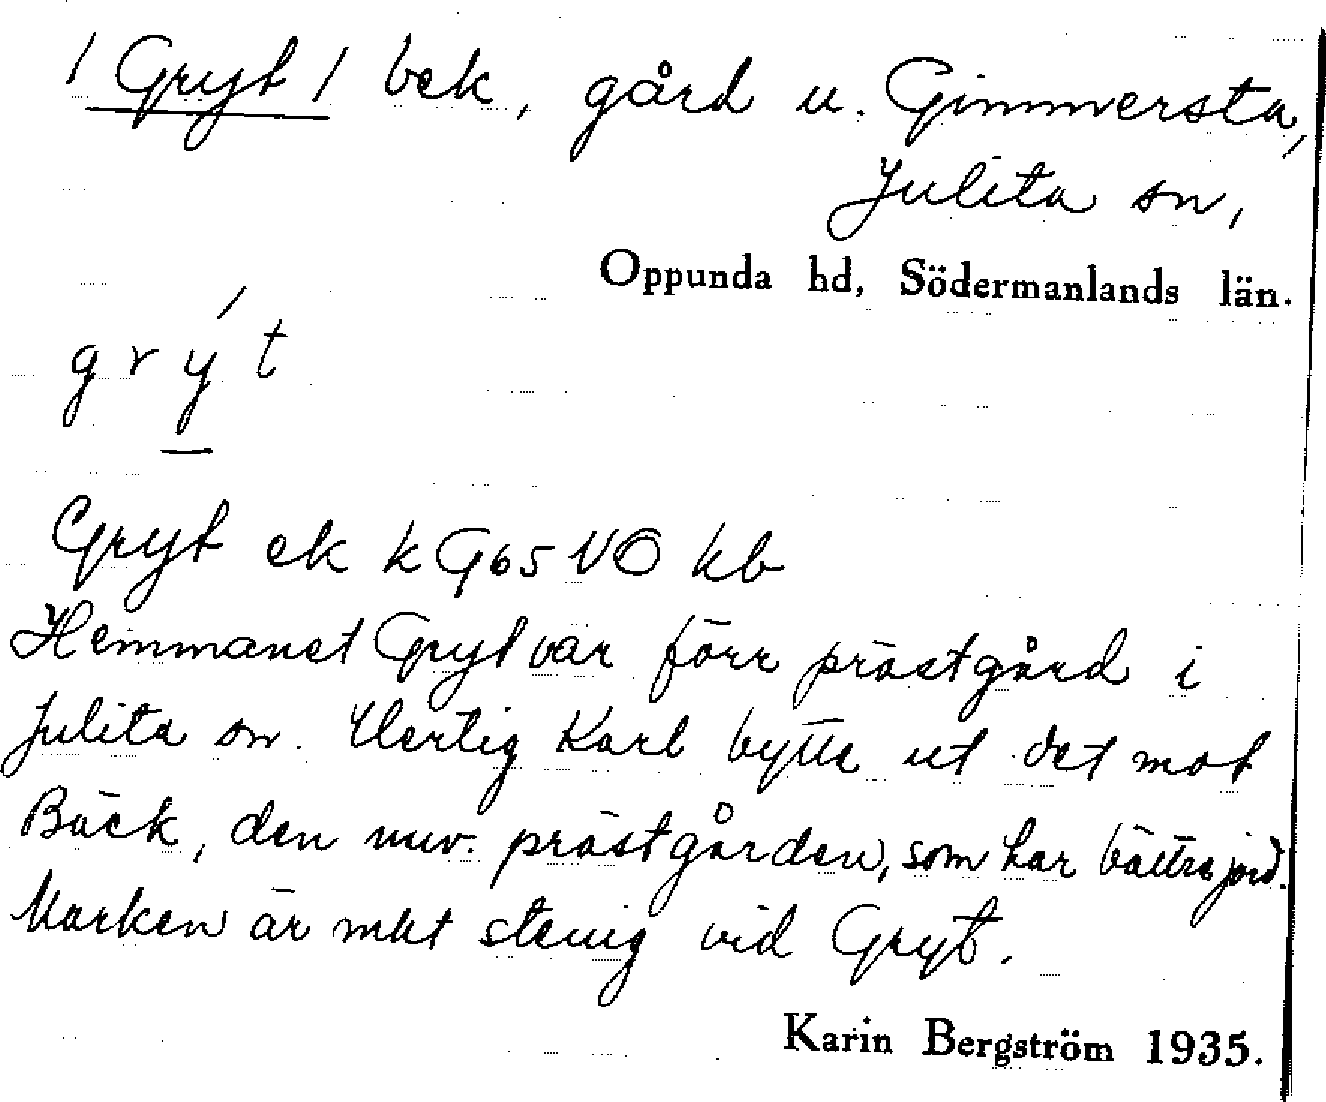 / Gryt / bek, gård u. Gimmersta,
Julita sn,
Oppunda hd, Södermanlands län.
g r ý t
Gryt ek k G65 NO kb
Hemmanet Gryt var förr prästgård i
Julita sn. Hertig Karl bytte ut det mot
Bäck, den nuv. prästgården, som har bättre jord.
Marken är mkt stenig vid Gryt.
Karin Bergström 1935.